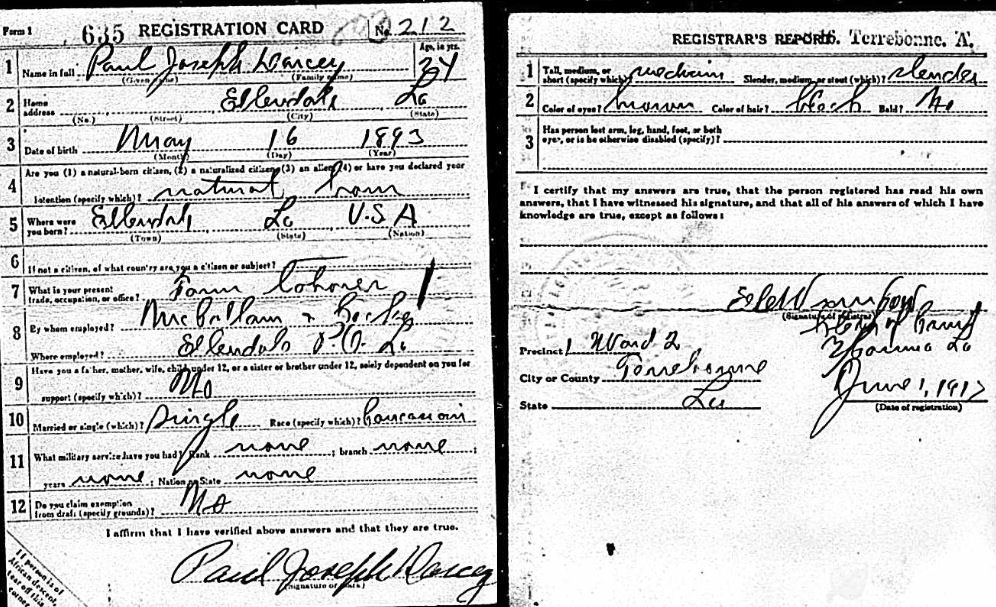 Form 1 635 REGISTRATION CARD No. 212
1 Name in full Paul Joseph Darcey Age, in yrs. 24
(Given name) (Family name)
2 Home address Ellendale La
(No.) (Street) (City) (State)
3 Date of birth May 16 1893
(Month) (Day) (Year)
4 Are you (1) a natural-born citizen, (2) a naturalized citizen, (3) an alien, (4) or have you declared your
intention (specify which)? natural born
5 Where were you born? Ellendale La U.S.A
(Town) (State) (Nation)
6 If not a citizen, of what country are you a citizen or subject?
7 What is your present trade, occupation, or office? Farm Laborer
8 By whom employed? McCollam &
Where employed? Ellendale P.O. La
9 Have you a father, mother, wife, child under 12, or a sister or brother under 12, solely dependent on you for
support (specify which)? No
10 Married or single (which)? Single Race (specify which)? Caucasian
11 What military service have you had? Rank none ; branch none ;
years none ; Nation or State none
12 Do you claim exemption from draft (specify grounds)? No
I affirm that I have verified above answers and that they are true.
Paul Joseph Darcey
(Signature or mark)
If person is of
African descent,
tear off this
corner
REGISTRAR'S REPORT Terrebonne. A.
1 Tall, medium, or short (specify which)? medium Slender, medium, or stout (which)? slender
2 Color of eyes? brown Color of hair? black Bald? No
3 Has person lost arm, leg, hand, foot, or both
eyes, or is he otherwise disabled (specify)?
I certify that my answers are true, that the person registered has read his own
answers, that I have witnessed his signature, and that all of his answers of which I have
knowledge are true, except as follows:
(Signature of registrar)
Clerk of Court
Precinct Ward 2 Houma La
City or County Terrebonne
State La June 1, 1917
(Date of registration)